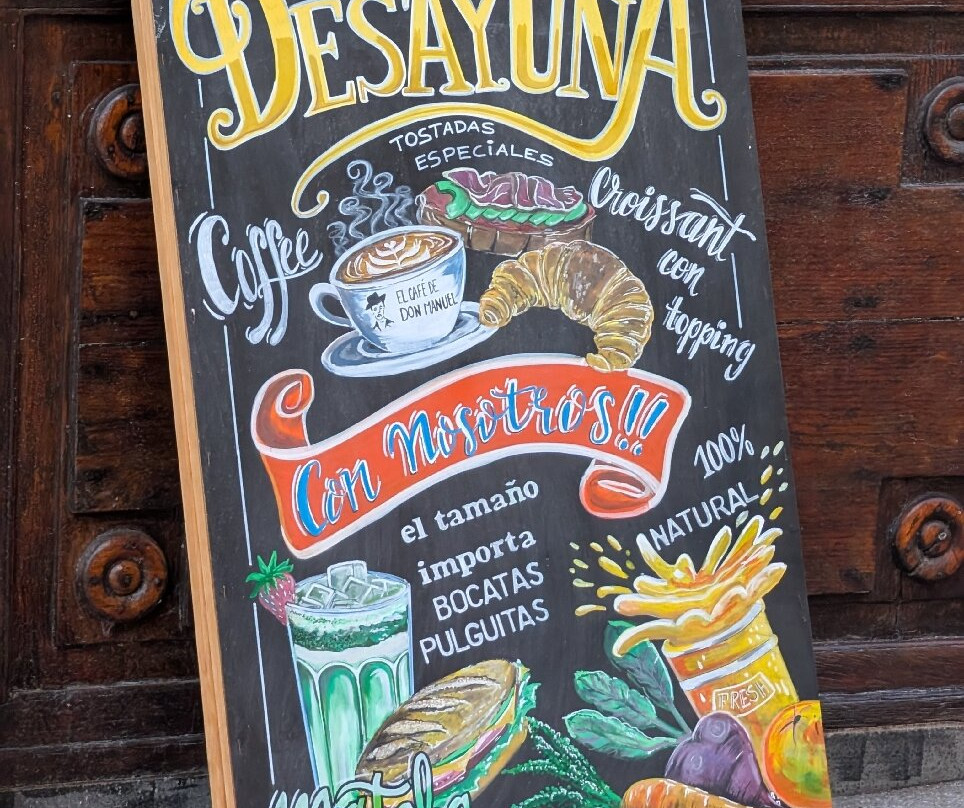 DESAYUNA
TOSTADAS
ESPECiALES
Coffee
Croissant
con
topping
EL CAFE DE
DON MANUEL
Con Nosotros!!
100%
NATURAL
el tamaño
importa
BOCATAS
PULGUITAS
FRESH
matcha